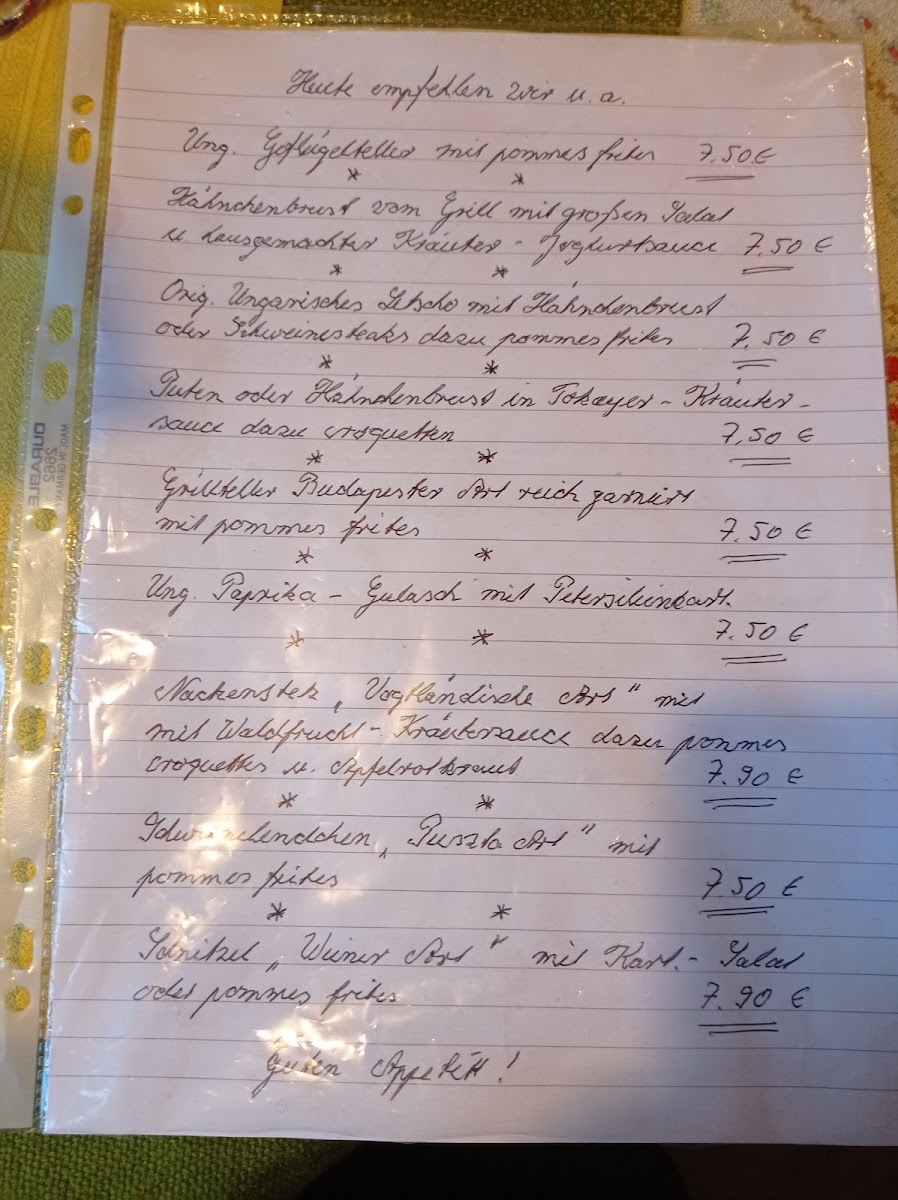 Heute empfehlen wir u. a.
Ung. Geflügelteller mit pommes frites 7.50 €
* *
Hähnchenbrust vom Grill mit großen Salat
u. hausgemachter Kräuter - Joghurtsauce 7.50 €
* *
Orig. Ungarisches Letscho mit Hähnchenbrust
oder Schweinesteaks dazu pommes frites 7.50 €
* *
Puten oder Hähnchenbrust in Tokayer - Kräuter -
sauce dazu croquetten 7.50 €
* *
Grillteller Budapester Art reich garniert
mit pommes frites 7.50 €
* *
Ung. Paprika - Gulasch mit Petersilienkart.
7.50 €
* *
Nackenstek „Vogtländische Art" mit
mit Waldfrucht - Kräutersauce dazu pommes
croquettes u. Apfelrotkraut 7.90 €
* *
Schweinelendchen „Puszta Art" mit
pommes frites 7.50 €
* *
Schnitzel „Wiener Art" mit Kart. - Salat
oder pommes frites 7.90 €
Guten Appetitt!
DURABLE
2662
MADE IN GERMANY